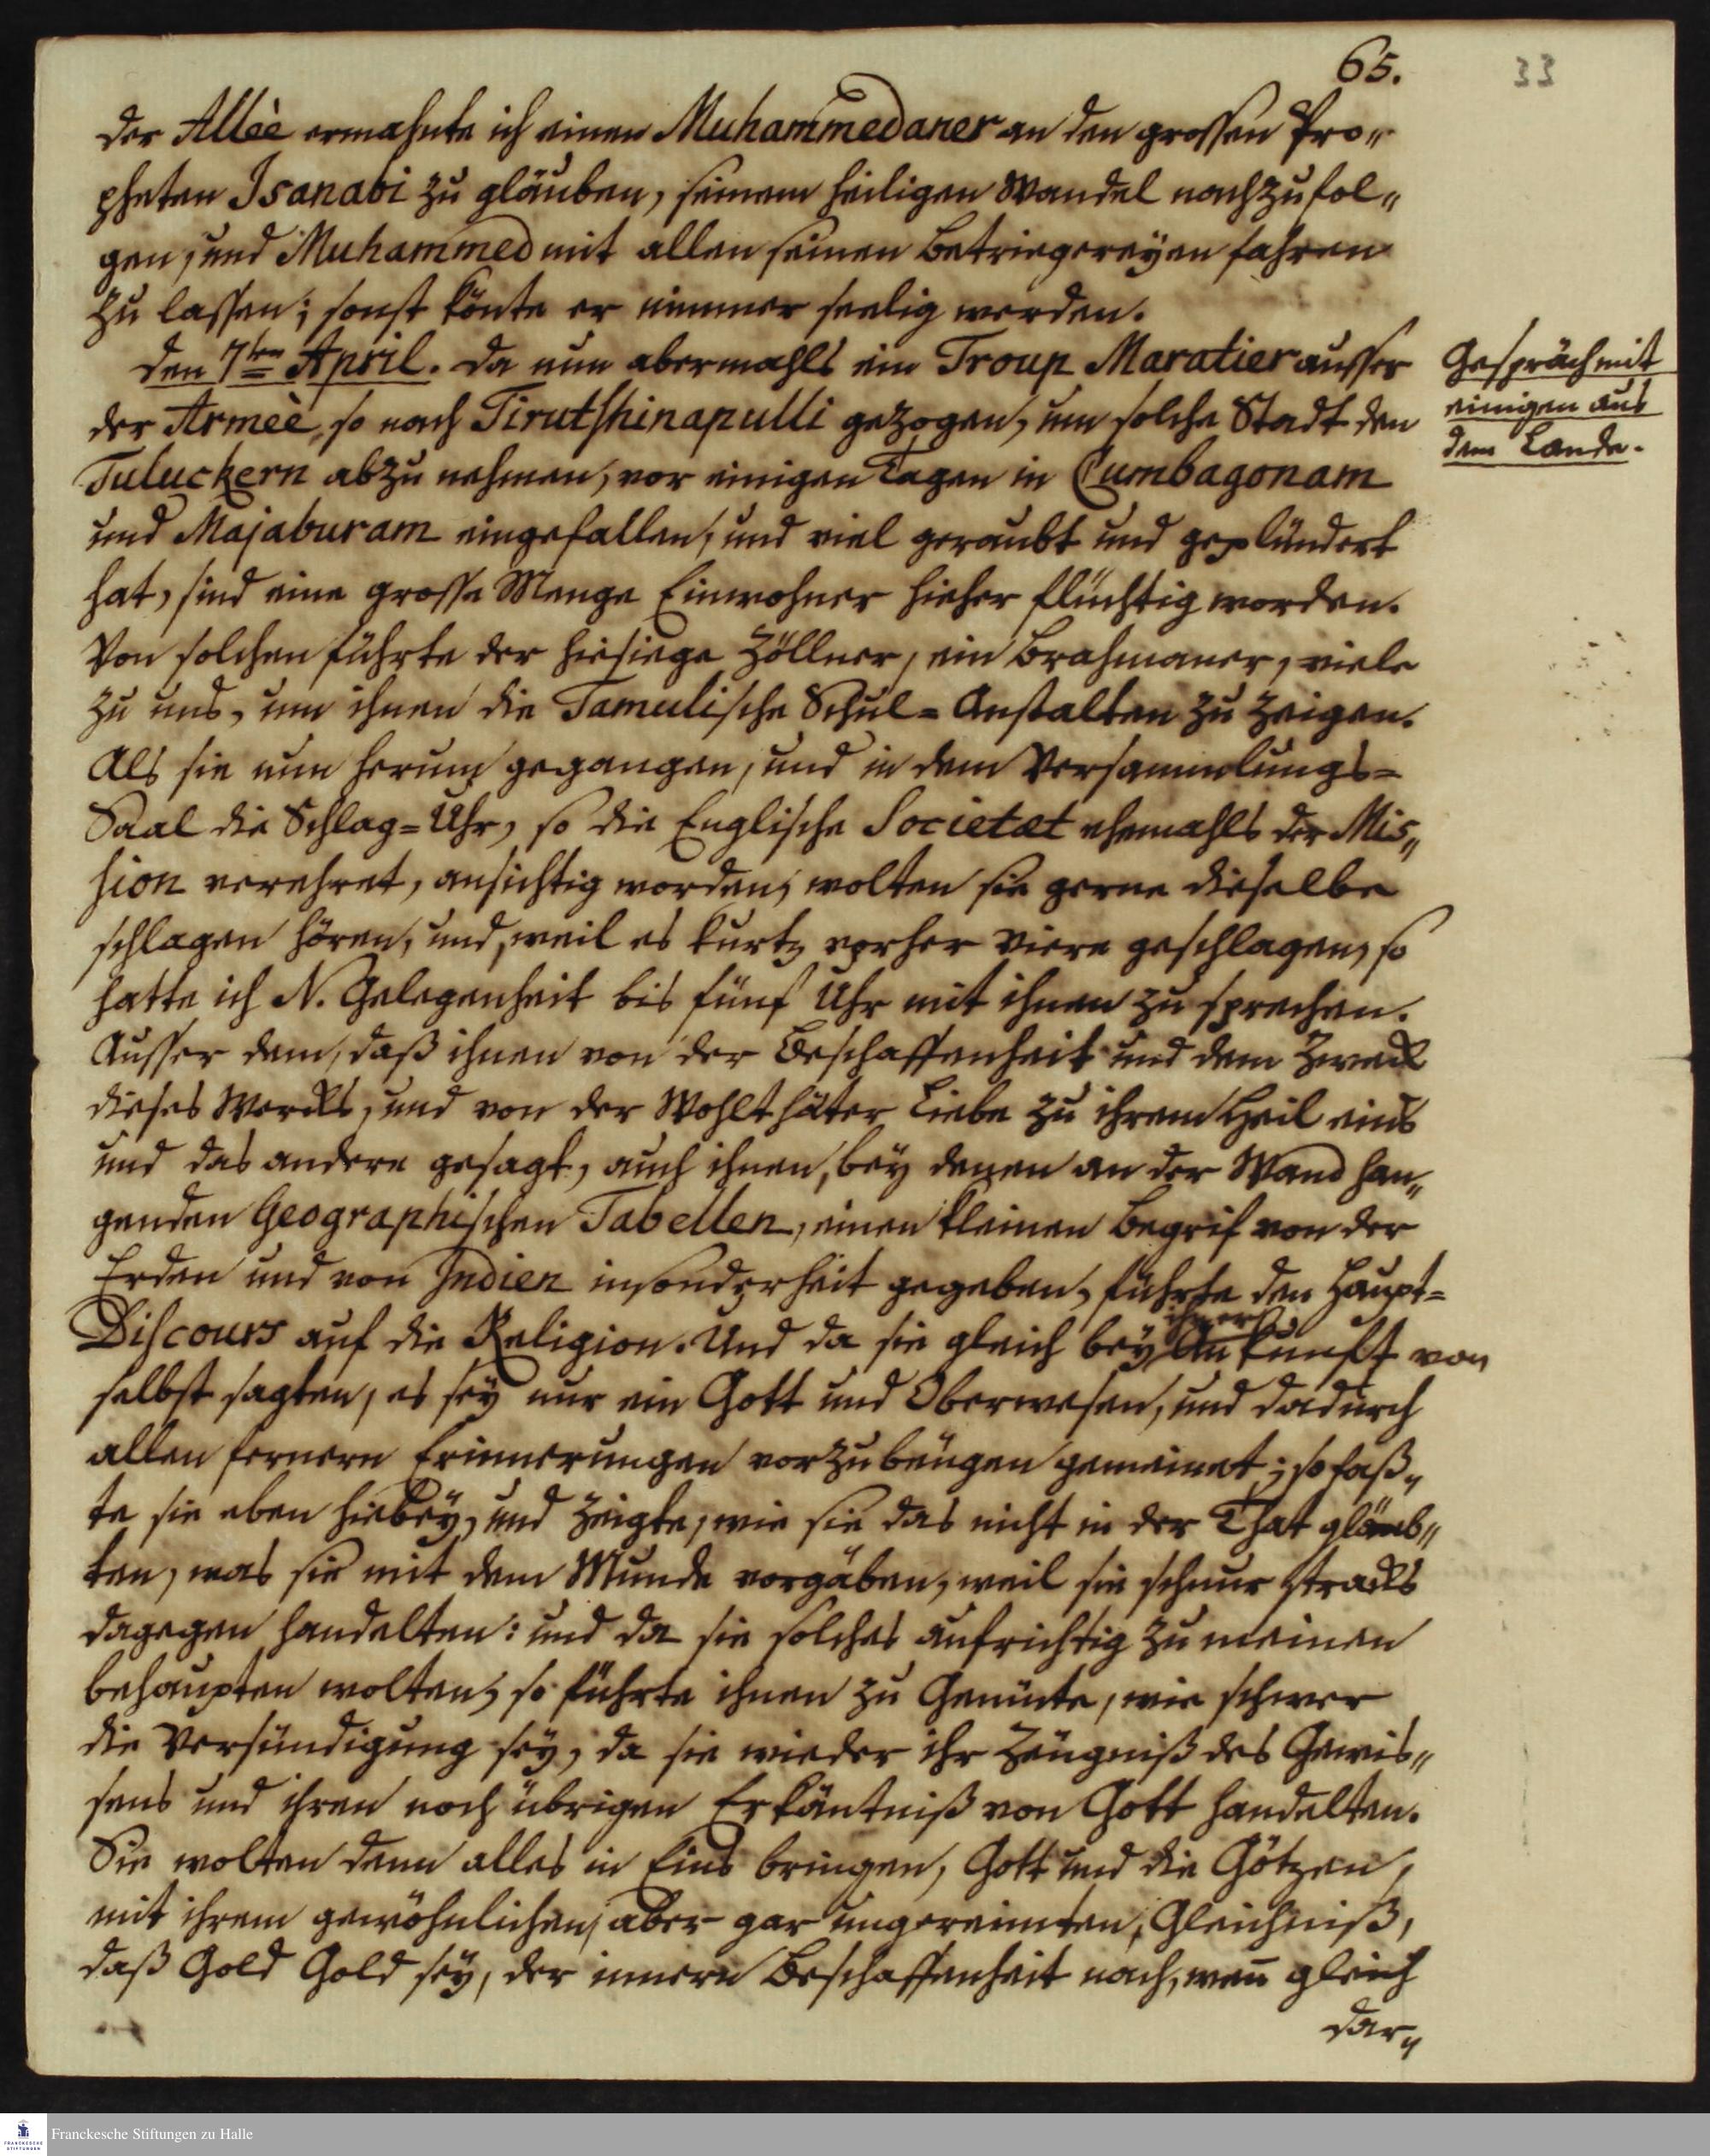 65.
33
der Alleè ermahnte ich einen Muhammedaner an den grossen Pro„
pheten Isanabi zu gläuben, seinem heiligen Wandel nachzufol„
gen, und Muhammed mit allen seinen Betriegereyen fahren
zu lassen; sonst könte er nimmer seelig werden.
Den 7ten April. Da nun abermahls ein Troup Maratier ausser
der Armeè, so nach Tirutshinapulli gezogen, um solche Stadt den
Tuluckern abzunehmen, vor einigen Tagen in Cumbagonam
und Majaburam eingefallen, und viel geraubt und geplündert
hat, sind eine grosse Menge Einwohner hieher flüchtig worden.
Von solchen führte der hiesiege Zöllner, ein Brahmaner, viele
zu uns, um ihnen die Tamulische Schul=Anstalten zu zeigen.
Als sie nun herum gegangen, und in dem Versammlungs=
Saal die Schlag=Uhr, so die Englische Societæt ehemahls der Mis„
sion verehret, ansichtig worden, wolten sie gerne dieselbe
schlagen hören, und, weil es kurtz vorher viere geschlagen, so
hatte ich N. Gelegenheit bis fünf Uhr mit ihnen zu sprechen.
Ausser dem, daß ihnen von der Beschaffenheit und dem Zweck
dieses Wercks, und von der Wohlthäter Liebe zu ihrem Heil eins
und das andere gesagt, auch ihnen, bey denen an der Wand han„
genden Geographischen Tabellen, einen kleinen Begrif von der
Erden und von Indien insonderheit gegeben, führte den Haupt=
Discours auf die Religion. Und da sie gleich bey ihrer Ankunft von
selbst sagten, es sey nur ein Gott und Oberwesen, und dadurch
allen fernern Erinnerungen vorzubeugen gemeinet; so faß„
te sie eben hiebey, und zeigte, wie sie das nicht in der That gläub„
ten, was sie mit dem Munde vorgäben, weil sie schnur stracks
dagegen handelten: und da sie solches aufrichtig zu meinen
behaupten wolten, so führte ihnen zu Gemüte, wie schwer
die Versündigung sey, da sie wieder ihr Zeugniß des Gewis„
sens und ihren noch übrigen Erkäntniß von Gott handelten.
Sie wolten denn alles in Eins bringen, Gott und die Götzen,
mit ihrem gewöhnlichen, aber gar ungereimten, Gleichniß,
daß Gold Gold sey, der innern Beschaffenheit nach, wen̄ gleich
dar„
Gespräch mit
einigen aus
dem Lande.
Franckesche Stiftungen zu Halle
FRANCKESCHE
STIFTUNGEN